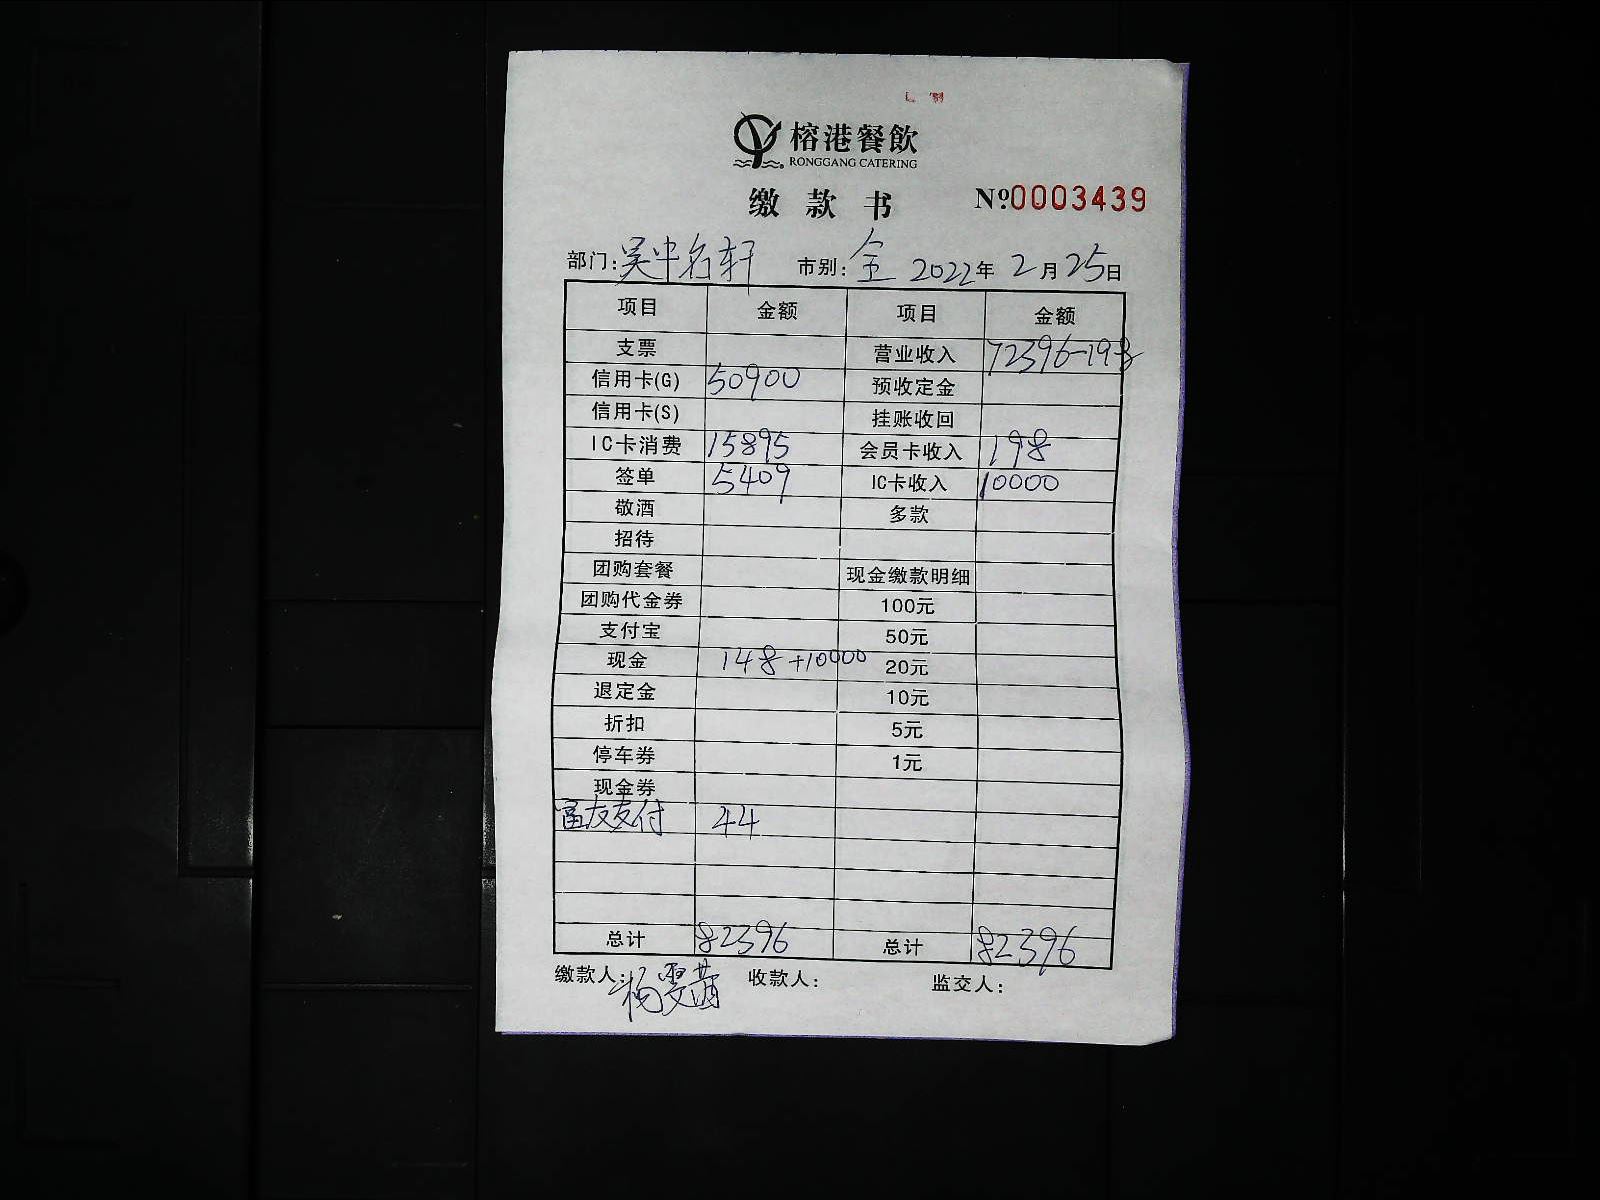 榕港餐飲
RONGGANG CATERING
缴款书 №0003439
部门：吴中名轩 市别：全 2022年2月25日
项目 金额 项目 金额
支票 营业收入 72396-198
信用卡(G) 50900 预收定金
信用卡(S) 挂账收回
IC卡消费 15895 会员卡收入 198
签单 5409 IC卡收入 10000
敬酒 多款
招待
团购套餐 现金缴款明细
团购代金券 100元
支付宝 50元
现金 148+10000 20元
退定金 10元
折扣 5元
停车券 1元
现金券
富友支付 44
总计 82396 总计 82396
缴款人：杨雯茜 收款人： 监交人：